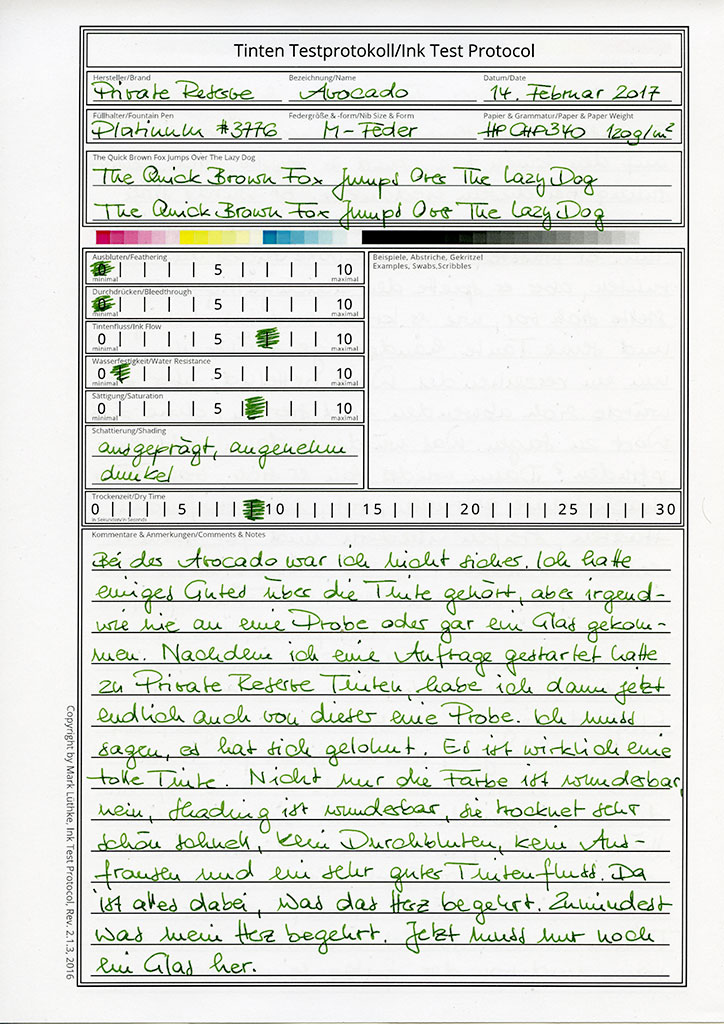 Tinten Testprotokoll/Ink Test Protocol
Hersteller/Brand Bezeichnung/Name Datum/Date
Private Reserve Avocado 14. Februar 2017
Füllhalter/Fountain Pen Federgröße & -form/Nib Size & Form Papier & Grammatur/Paper & Paper Weight
Platinum #3776 M-Feder HP CHP340 120g/m²
The Quick Brown Fox Jumps Over The Lazy Dog
The Quick Brown Fox Jumps Over The Lazy Dog
The Quick Brown Fox Jumps Over The Lazy Dog
Ausbluten/Feathering
0 5 10
minimal maximal
Durchdrücken/Bleedthrough
0 5 10
minimal maximal
Tintenfluss/Ink Flow
0 5 10
minimal maximal
Wasserfestigkeit/Water Resistance
0 5 10
minimal maximal
Sättigung/Saturation
0 5 10
minimal maximal
Schattierung/Shading
ausgeprägt, angenehm
dunkel
Beispiele, Abstriche, Gekritzel
Examples, Swabs,Scribbles
Trockenzeit/Dry Time
0 5 10 15 20 25 30
in Sekunden/in Seconds
Kommentare & Anmerkungen/Comments & Notes
Bei der Avocado war ich nicht sicher. Ich hatte
einiges Gutes über die Tinte gehört, aber irgend-
wie nie an eine Probe oder gar ein Glas gekom-
men. Nachdem ich eine Anfrage gestartet hatte
zu Private Reserve Tinten, habe ich dann jetzt
endlich auch von dieser eine Probe. Ich muss
sagen, es hat sich gelohnt. Es ist wirklich eine
tolle Tinte. Nicht nur die Farbe ist wunderbar,
nein, Shading ist wunderbar, sie trocknet sehr
schön schnell, kein Durchbluten, kein Aus-
fransen und ein sehr guter Tintenfluss. Da
ist alles dabei, was das Herz begehrt. Zumindest
was mein Herz begehrt. Jetzt muss nur noch
ein Glas her.
Copyright by Mark Luthke, Ink Test Protocol, Rev. 2.1.3, 2016